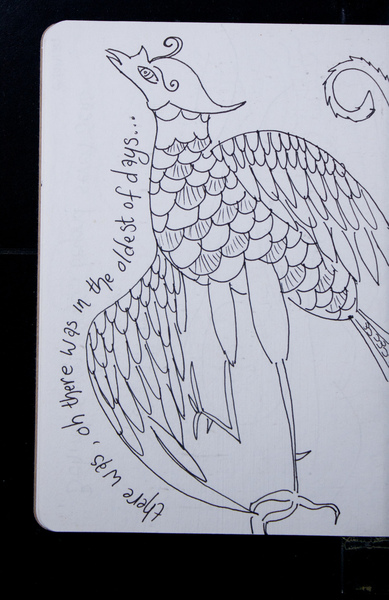 there was, oh there was in the oldest of days...